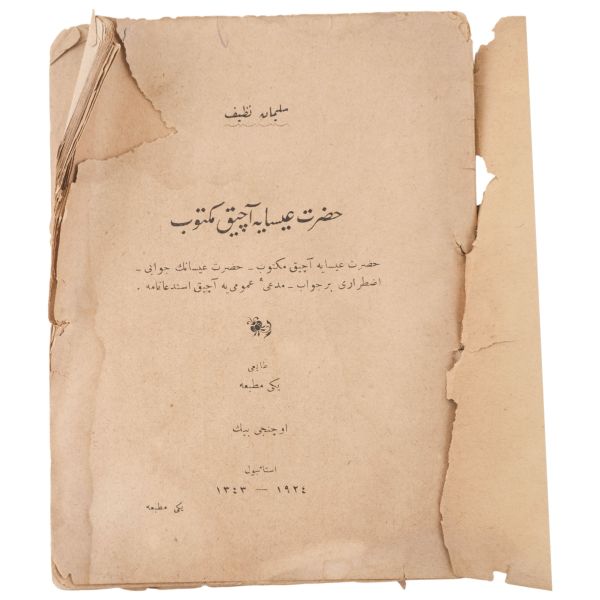 سلیمان نظیف
حضرت عیسایه آچیق مکتوب
حضرت عیسایه آچیق مکتوب ـ حضرت عیسانك جوابی ـ
اضطراری بر جواب ـ مدعیٔ عمومی‌یه آچیق استدعانامه .
طابعی
یکی مطبعه
اوچنجی بیك
استانبول
١٩٢٤ — ١٣٤٣
یکی مطبعه